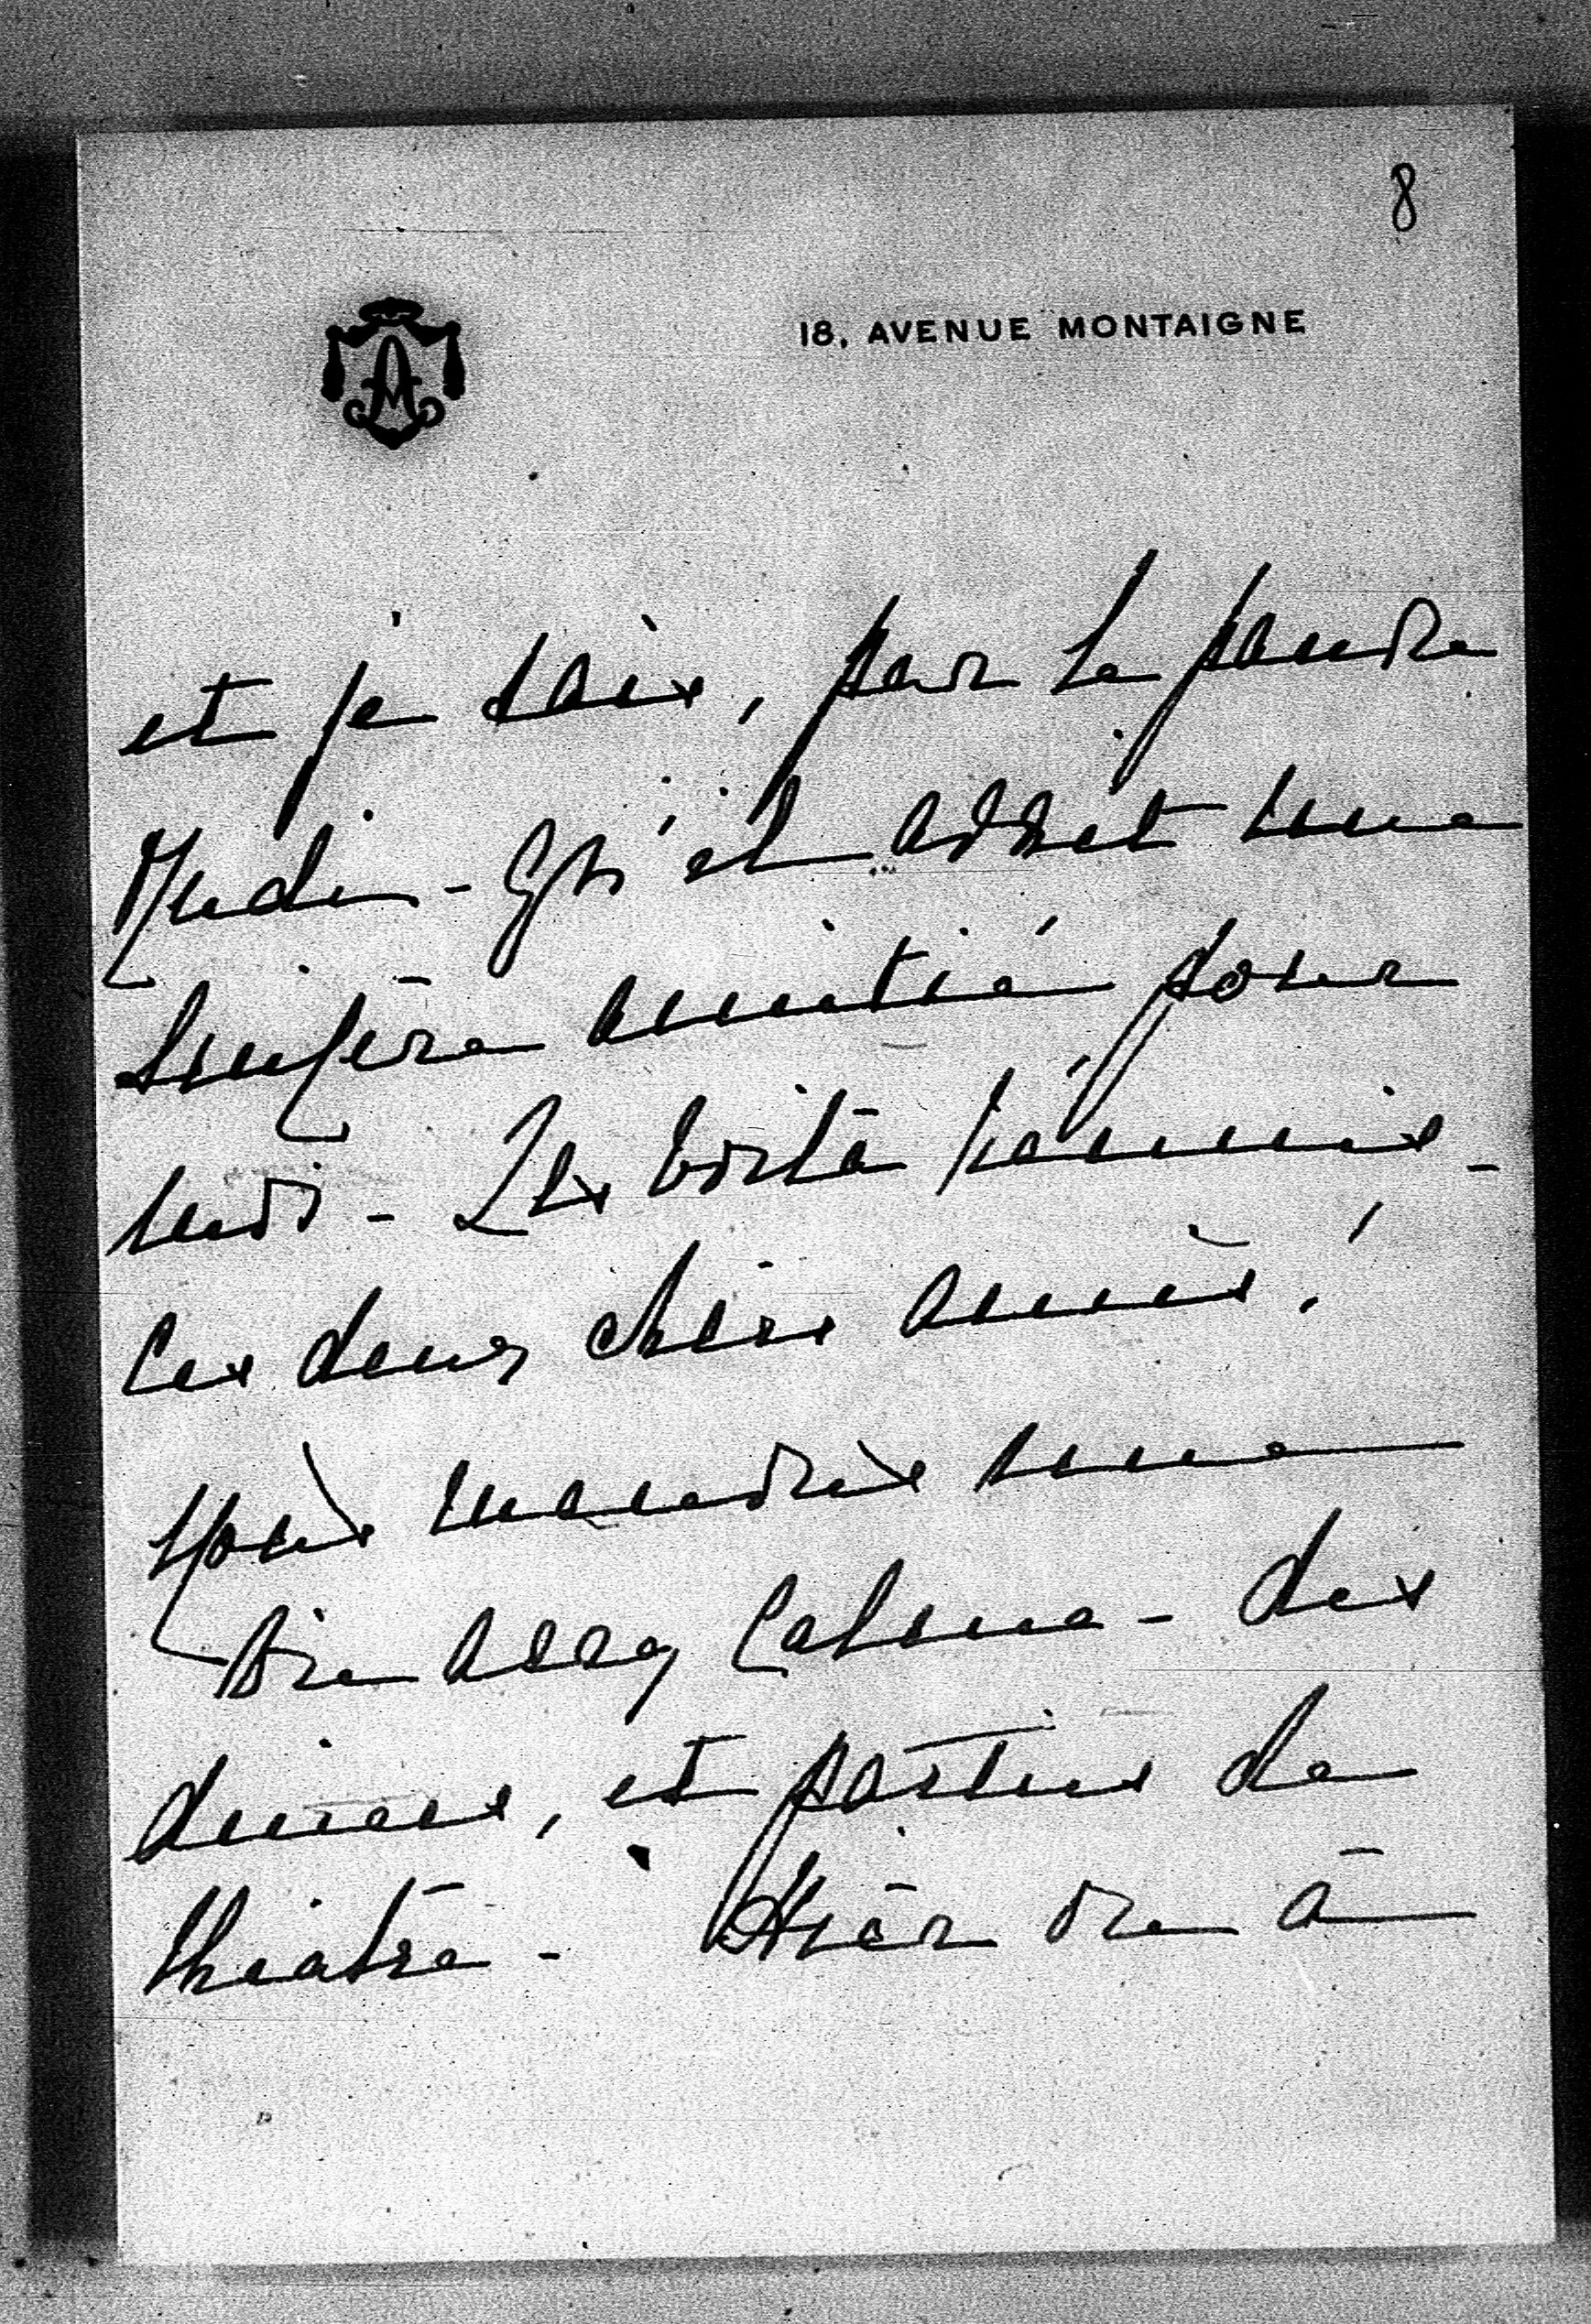 8
18, AVENUE MONTAIGNE
et je sais, par le pauvre
qu'il avait une
sincère amitié pour
lui - Les voilà réunis -
ces deux chers amis !
Nous menons une
vie assez calme - des
diners, et parties de
théatre - Hier on a